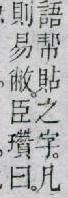 語帮貼之字。凡
則易敝。臣瓚曰。